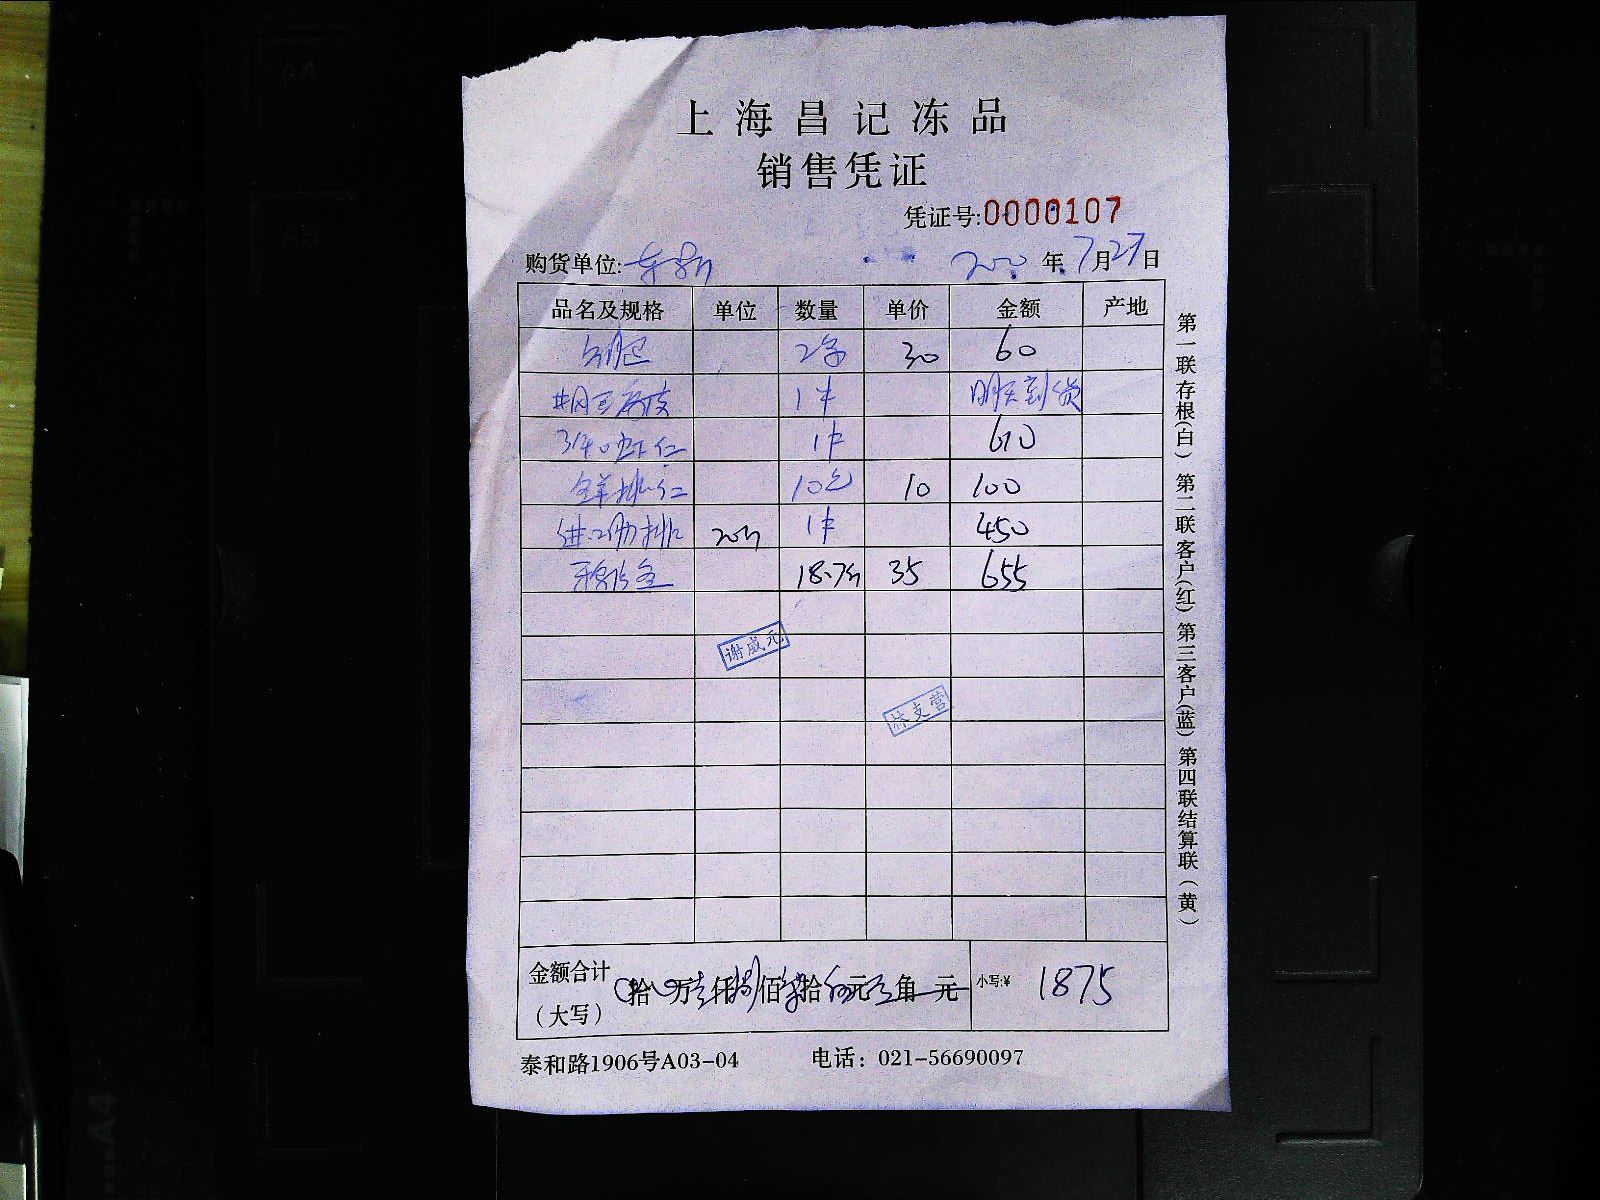 上海昌记冻品
销售凭证
凭证号:0000107
购货单位: 年7月27日
品名及规格 单位 数量 单价 金额 产地
30 60
1件 明天到货
虾仁 1件 610
10包 10 100
进口肋排 20斤 1件 450
18.7斤 35 655
谢威元
林支营
金额合计
(大写) 拾 万 仟 佰 拾 元 角 元 小写:¥ 1875
泰和路1906号A03-04 电话：021-56690097
第一联存根(白) 第二联客户(红) 第三客户(蓝) 第四联结算联(黄)